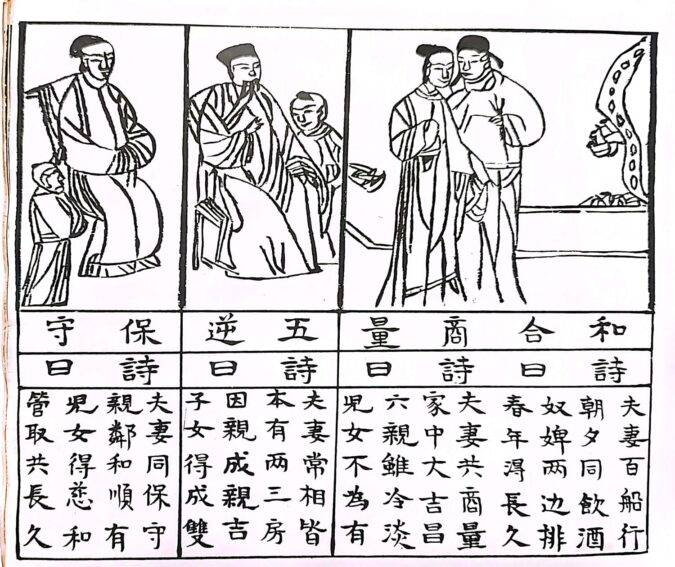 和合
詩曰
夫妻百船行
朝夕同飲酒
奴婢两边排
春年淂長久
商量
詩曰
夫妻共商量
家中大吉昌
六親雖冷淡
児女不為有
五逆
詩曰
夫妻常相皆
本有两三房
因親成親吉
子女得成雙
保守
詩曰
夫妻同保守
親鄰和順有
児女得慈和
管取共長久